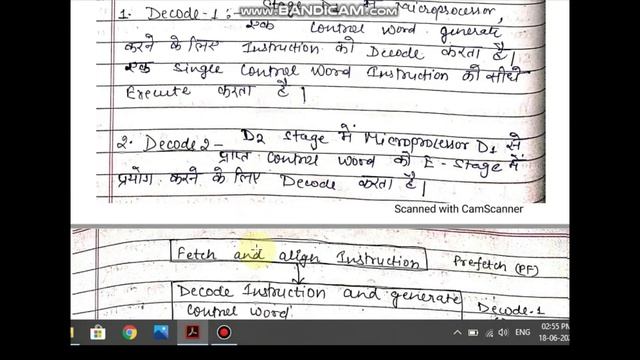 www.BANDICAM.com
Stage में Microprocessor,
1. Decode-1:- एक control word generate
करने के लिए Instruction को Decode करता है।
एक single control word Instruction को सीधे
Execute करता है।
2. Decode2- D2 Stage में Microprocessor D1 से
प्राप्त control word को E-Stage में
प्रयोग करने के लिए Decode करता है।
Scanned with CamScanner
Fetch and align Instruction Prefetch (PF)
Decode Instruction and generate Decode-1
control word
ENG
02:55 PM